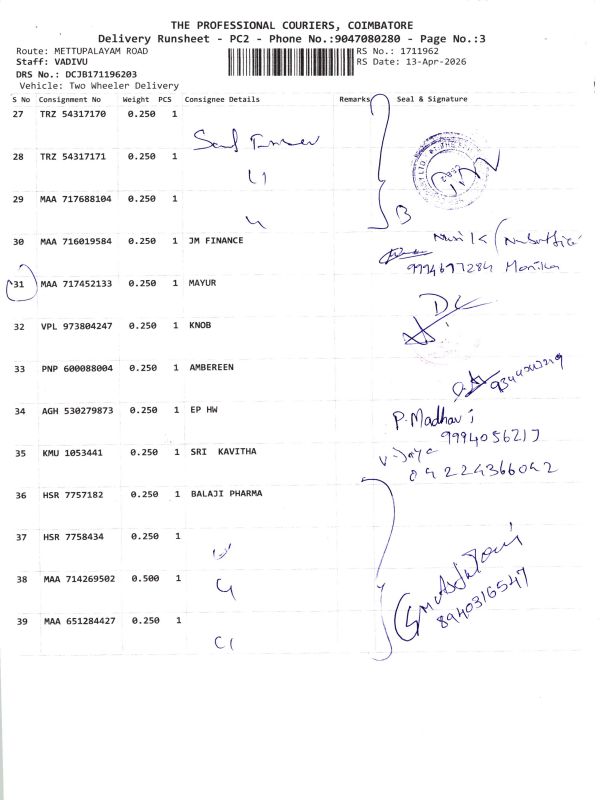 THE PROFESSIONAL COURIERS, COIMBATORE
Delivery Runsheet - PC2 - Phone No.:9047080280 - Page No.:3
Route: METTUPALAYAM ROAD RS No.: 1711962
Staff: VADIVU RS Date: 13-Apr-2026
DRS No.: DCJB171196203
Vehicle: Two Wheeler Delivery
S No Consignment No Weight PCS Consignee Details Remarks Seal & Signature
27 TRZ 54317170 0.250 1
28 TRZ 54317171 0.250 1
29 MAA 717688104 0.250 1
30 MAA 716019584 0.250 1 JM FINANCE
9994697284 Monika
31 MAA 717452133 0.250 1 MAYUR
32 VPL 973804247 0.250 1 KNOB
33 PNP 600088004 0.250 1 AMBEREEN
34 AGH 530279873 0.250 1 EP HW
P. Madhavi
9994056217
35 KMU 1053441 0.250 1 SRI KAVITHA
04224366042
36 HSR 7757182 0.250 1 BALAJI PHARMA
37 HSR 7758434 0.250 1
38 MAA 714269502 0.500 1
8940316547
39 MAA 651284427 0.250 1